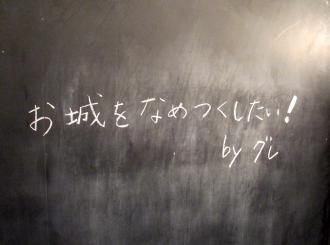 お城をなめつくしたい!
by グレ